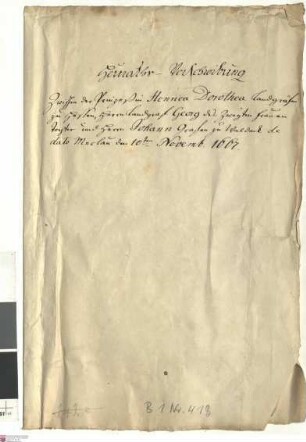 Heuraths-Verschreibung
Zwischen der Prinzeßin Henrica Dorothea Landgräfin
zu Hessen, Herrn Landgraf Georg des Zweyten Fräulein
Tochter und Herrn Johann Grafen zu Waldeck de
dato Merlau den 10ten Novemb. 1667
B 1 Nr. 418